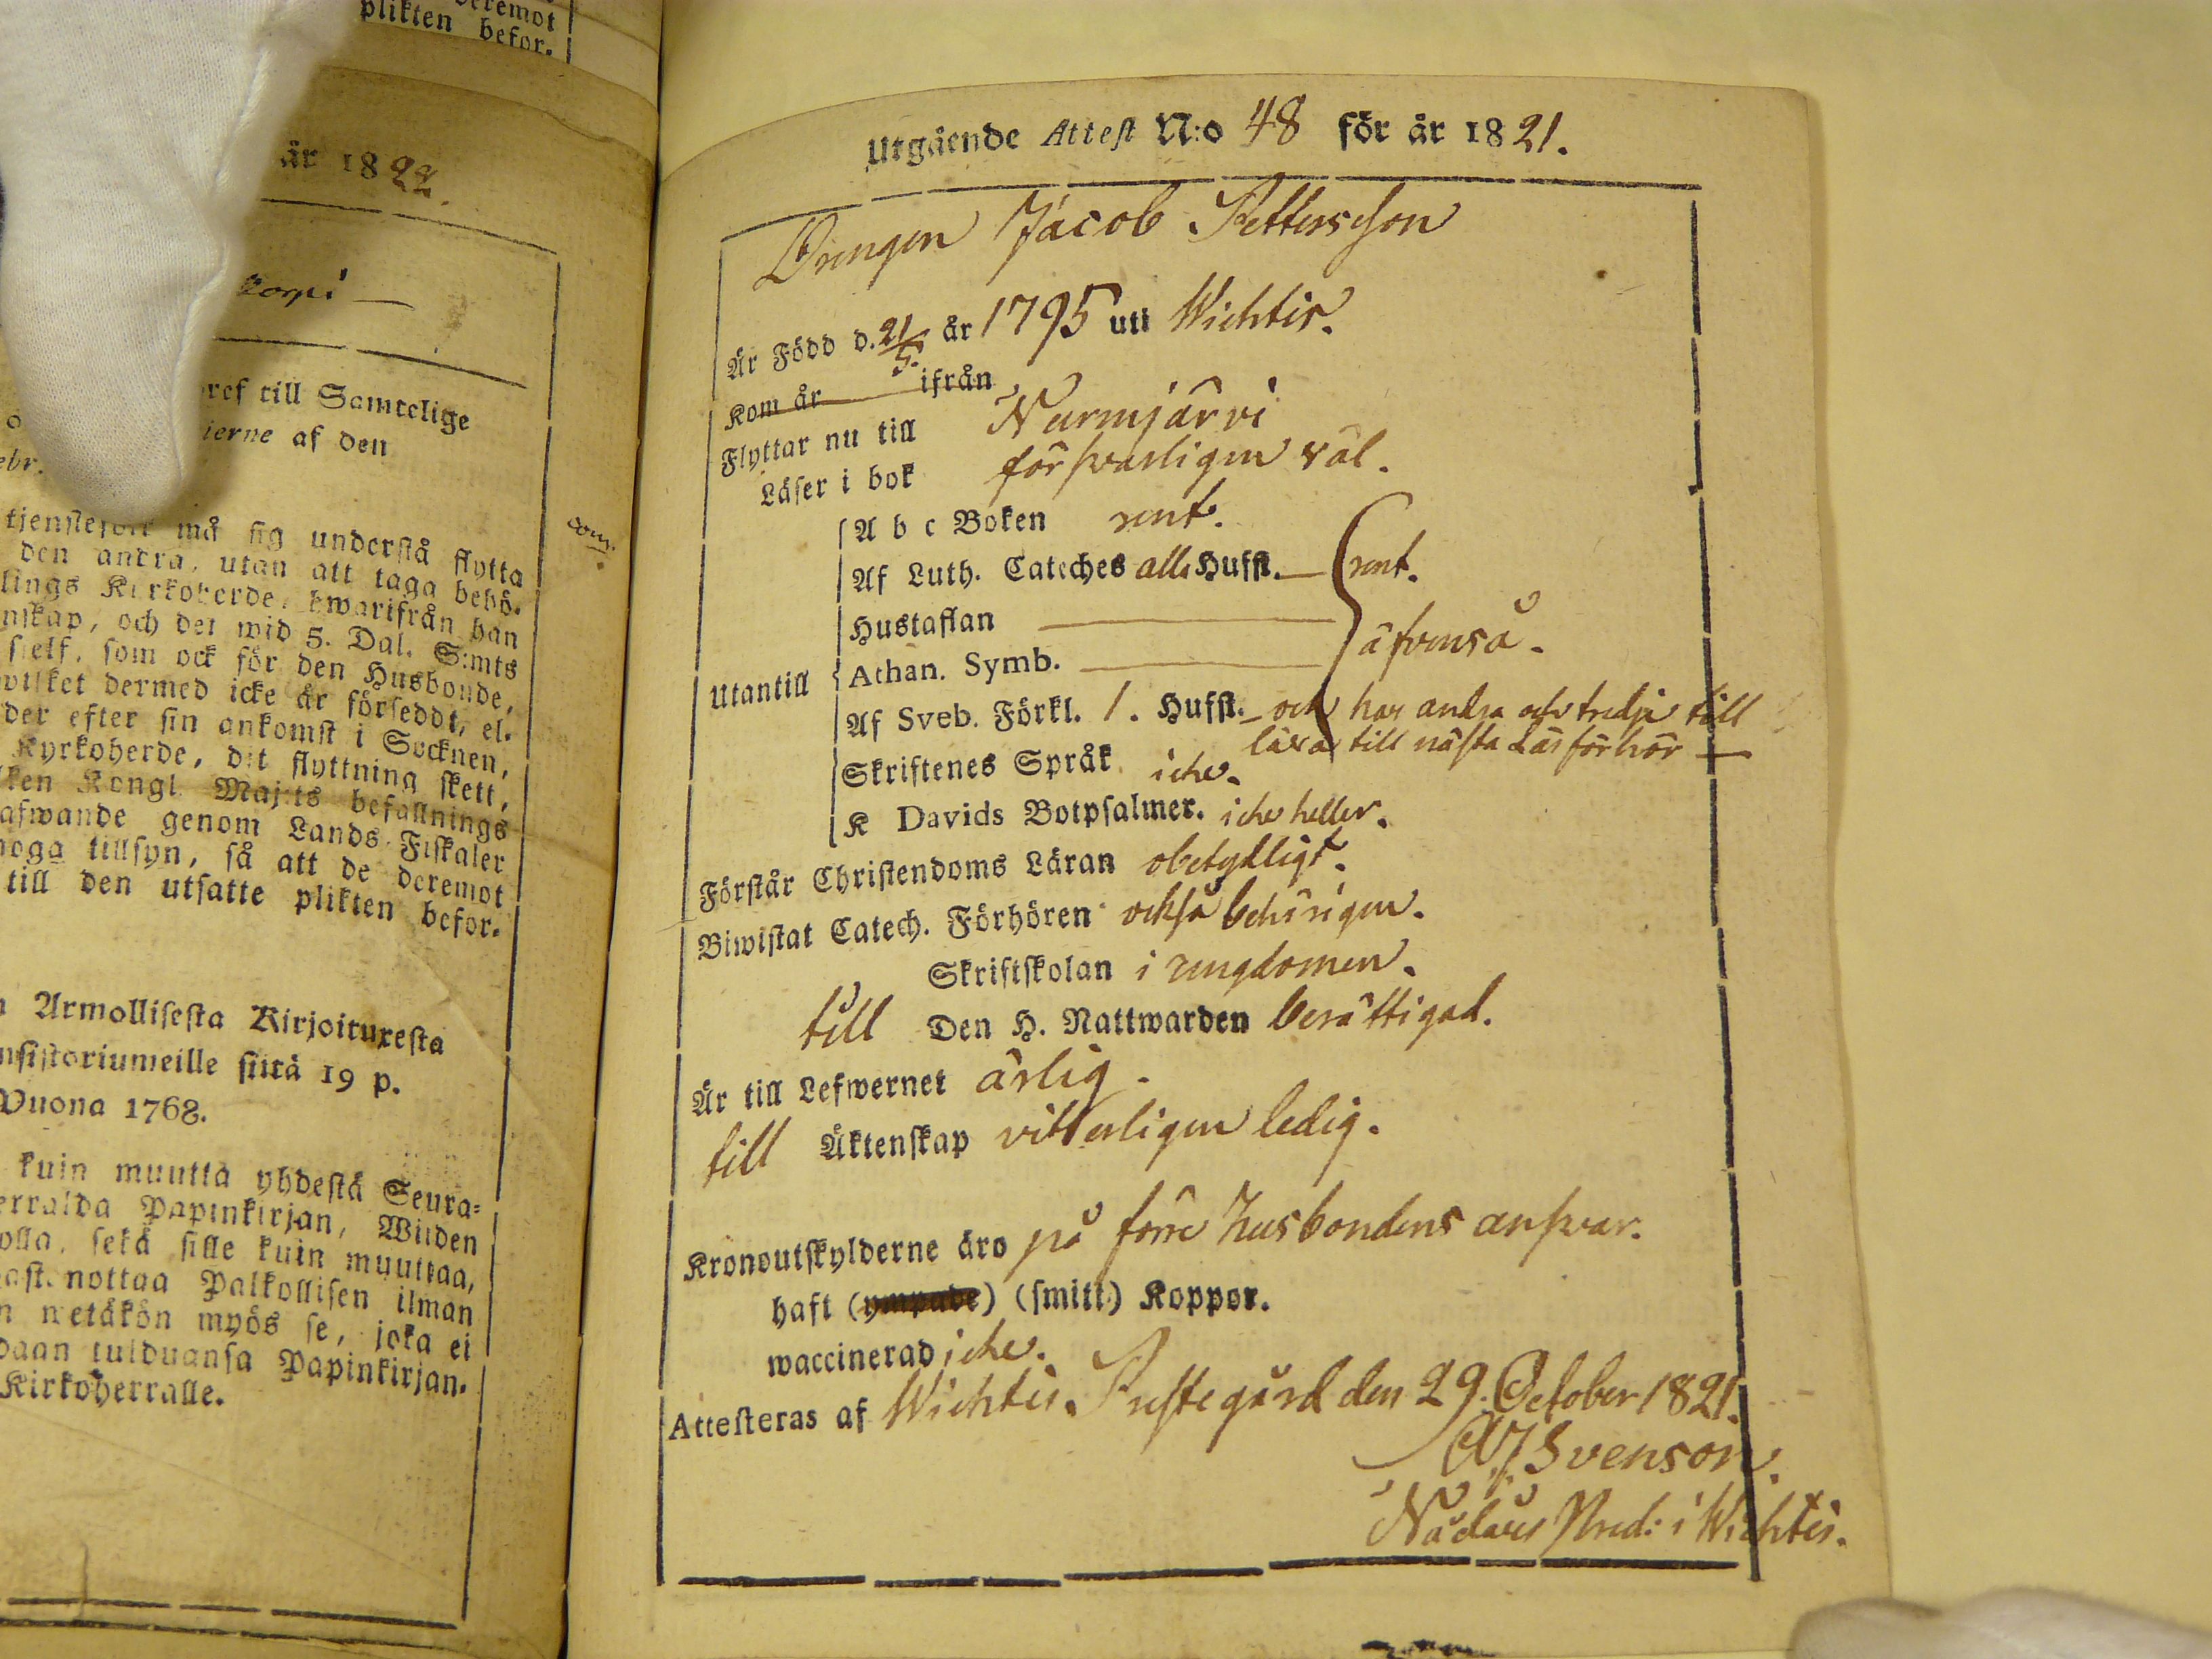 deremot
plikten befor.
år 1822.
korpi
bref till Samtelige
ierne af den
ebr.
tjenstefolk må sig understå flytta
den andra, utan att taga behö-
lings Kirkoherde, hwarifrån han
nskap, och det wid 5. Dal. S:mts
sielf, som ock för den Husbonde,
wilket dermed icke är förseddt, el-
der efter sin ankomst i Socknen,
Kyrkoherde, dit flyttning skett,
ken Kongl. Maj:ts befallnings
afwande genom Lands-Fiskaler
noga tillsyn, så att de deremot
till den utsatte plikten befor-
Armollisesta Kirjoituxesta
nsistoriumeille siitä 19 p.
Wuona 1768.
kuin muutta yhdestä Seura-
erralda Papinkirjan, Wiiden
olla, sekä sille kuin muuttaa,
ast. nottaa Palkollisen ilman
n metäkön myös se, joka ei
daan tulduansa Papinkirjan-
Kirkoherralle.
Utgående Attest N:o 48 för år 1821.
Drengen Jacob Pettersson
Är Född d. 21/5. år 1795 uti Wichtis.
Kom år ifrån
Flyttar nu till Nurmjärvi
Läser i bok försvarligen väl.
A b c Boken rent.
Af Luth. Cateches alla Hufst. rent.
Hustaflan
Utantill Athan. Symb. äfvenså.
Af Sveb. Förkl. 1. Hufst. och har andra och tredje till
lära till nästa Läsförhör
Skriftenes Språk icke.
K Davids Botpsalmer. icke heller.
Förstår Christendoms Läran obetydligt.
Biwistat Catech. Förhören också behörigen.
Skriftskolan i ungdomen.
till Den H. Nattwarden berättigad.
Är till Lefwernet ärlig.
till Äktenskap vitterligen ledig.
Kronoutskylderne äro på förre husbondens ansvar.
haft (ympade) (smitt) Koppor.
waccinerad icke.
Attesteras af Wichtis Prestegård den 29. October 1821.
Svenson.
Nådårs Pred: i Wichtis.